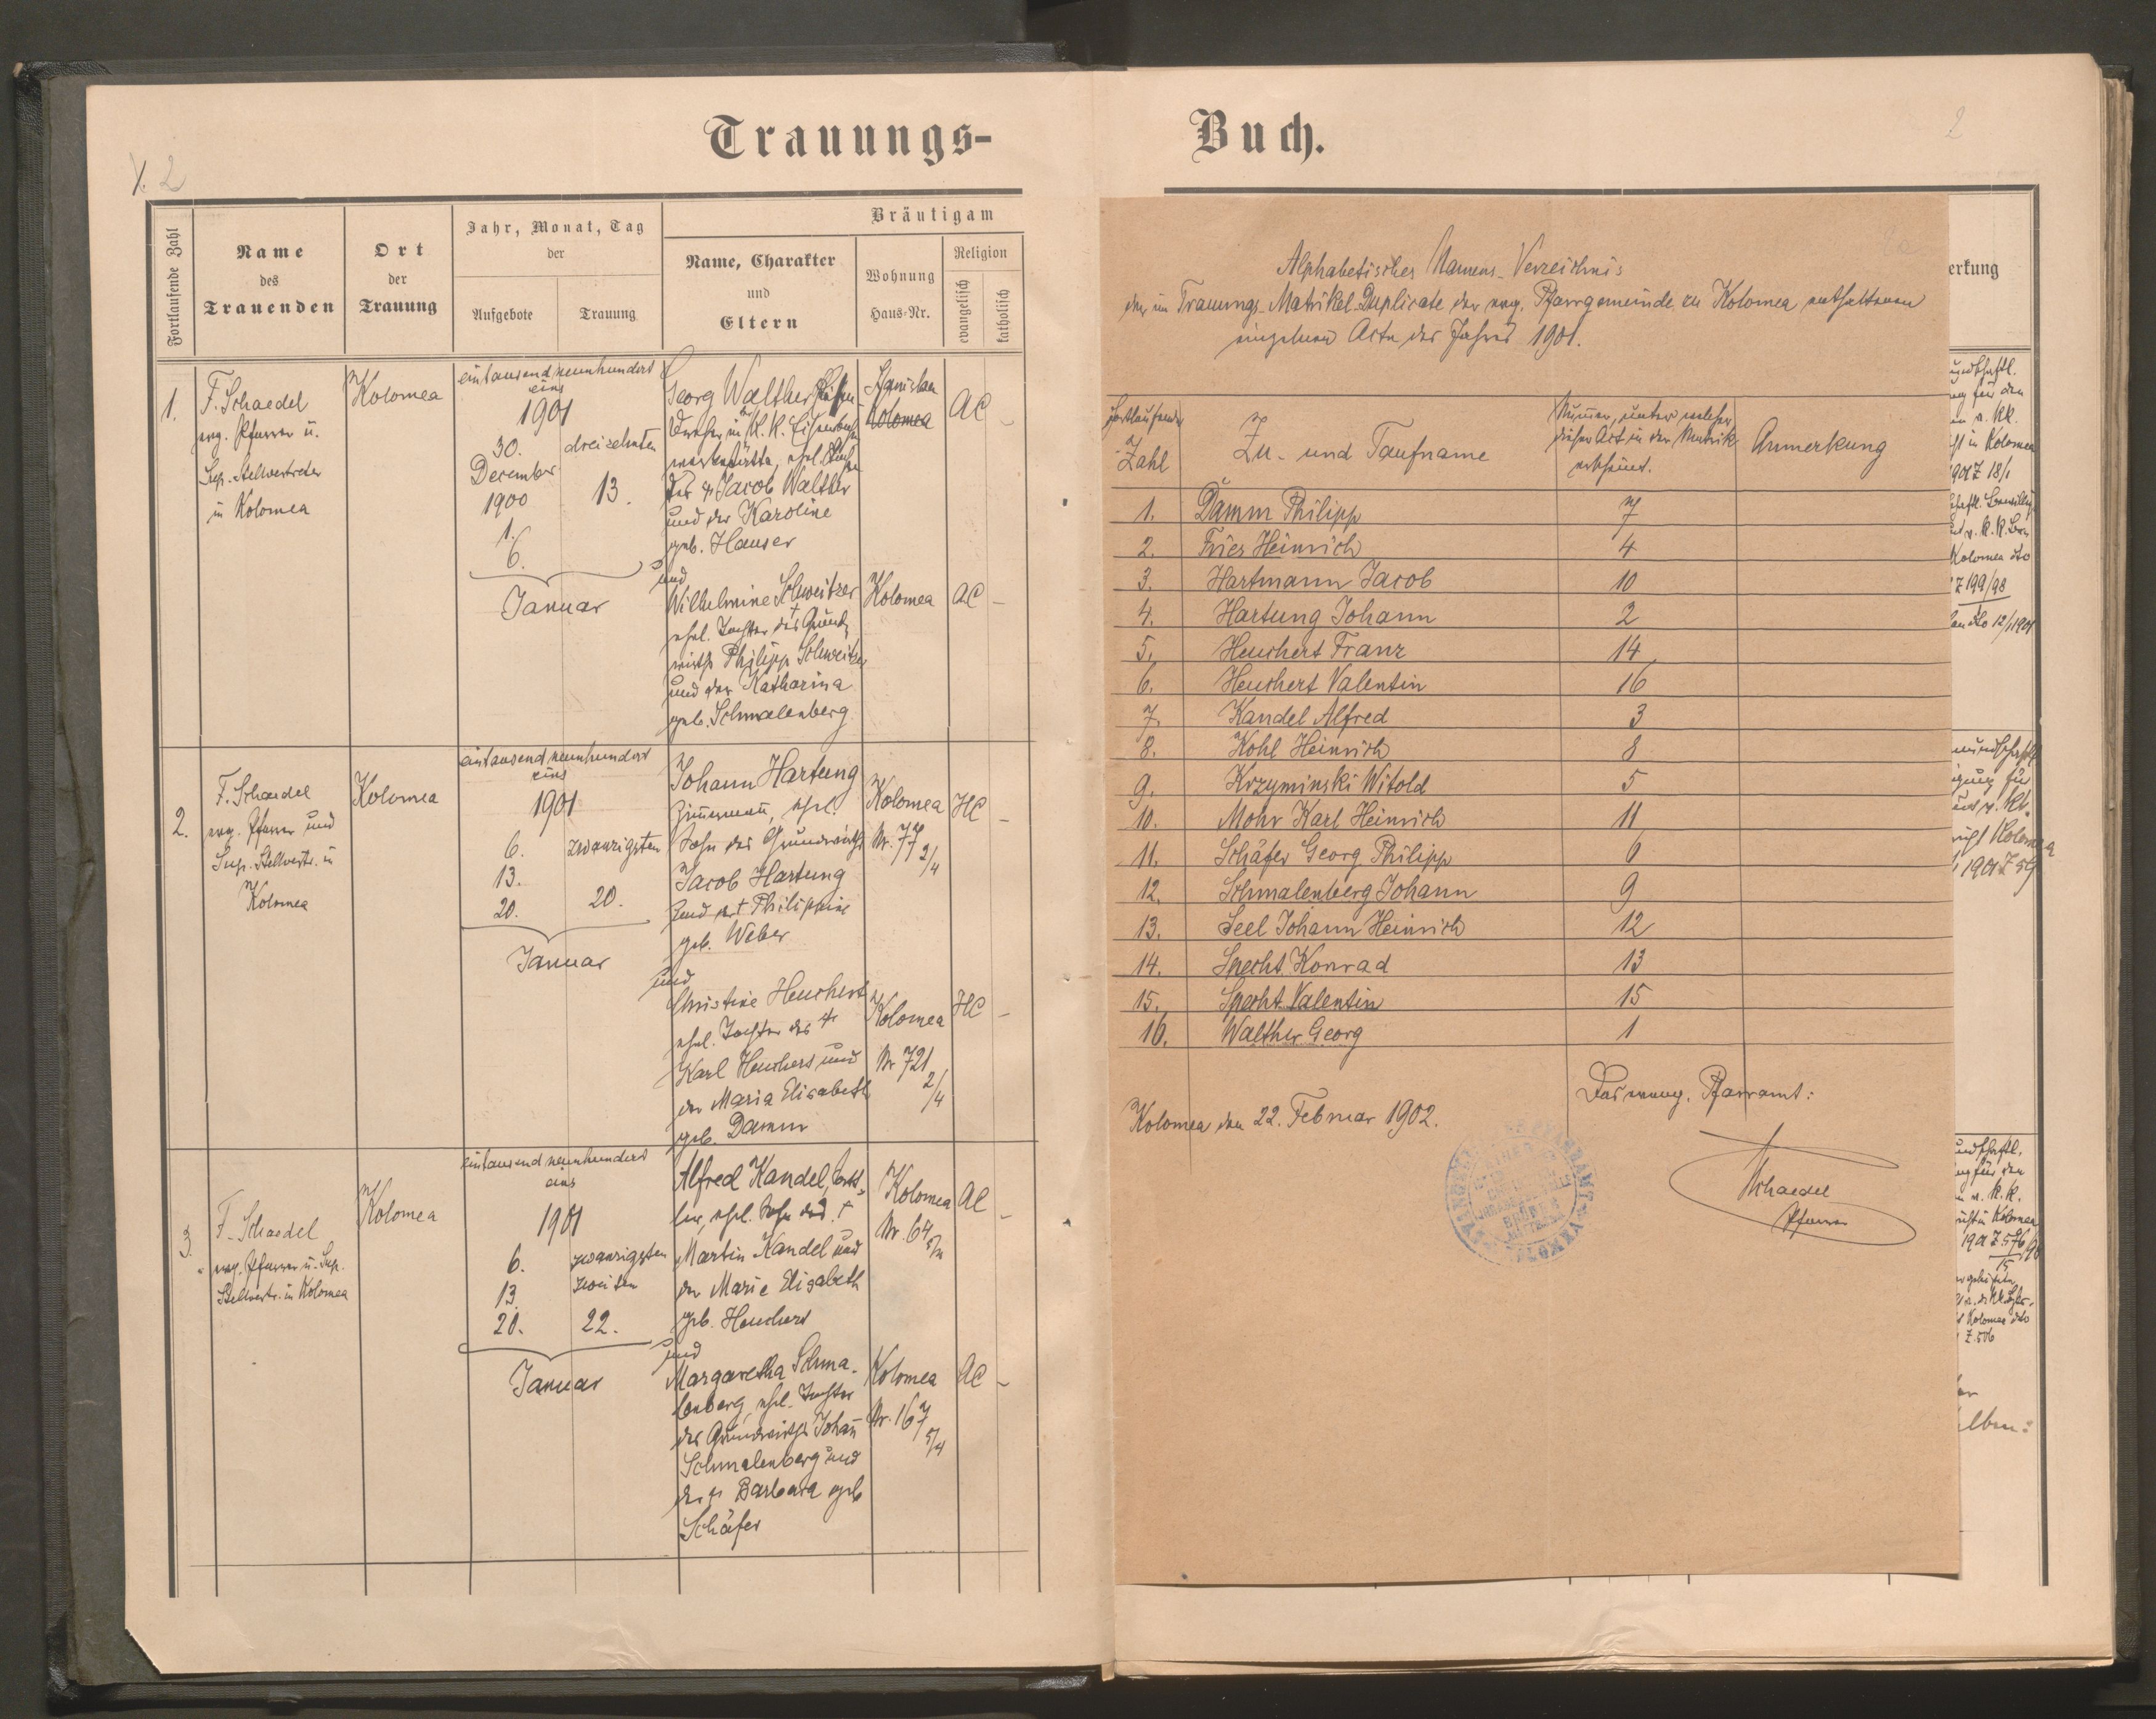 Trauungs-
Buch.
2
1. 2
Fortlaufende Zahl
Name
des
Trauenden
Ort
der
Trauung
Jahr, Monat, Tag
der
Aufgebote
Trauung
Bräutigam
Name, Charakter
und
Eltern
Wohnung
Haus-Nr.
Religion
evangelisch
katholisch
1.
F. Schaedel
evg. Pfarrer u.
Sup. Stellvertreter
in Kolomea
Kolomea
eintausend neunhundert
eins
1901
30.
December
1900
1.
6.
Januar
dreizehnten
13.
Georg Walther
ehel. Sohn
des + Jacob Walther
und der Karoline
geb. Hauser
und
Wilhelmine Schweitzer
ehel. Tochter des + Grund-
wirths Philipp Schweitzer
und der Katharina
geb. Schmalenberg
Stanislau
Kolomea
AC
-
Kolomea
AC
-
2.
F. Schaedel
evg. Pfarrer und
Sup. Stellvertr. in
Kolomea
Kolomea
eintausend neunhundert
eins
1901
6.
13.
20.
Januar
zwanzigsten
20.
Johann Hartung
Zimmermann, ehel.
Sohn des Grundwirths
Jacob Hartung
und der + Philippine
geb. Weber
und
Christine Heuchert
ehel. Tochter des +
Karl Heuchert und
der Maria Elisabeth
geb. Damm
Kolomea
Nr. 77
2/4
HC
-
Kolomea
Nr 721
2/4
HC
-
3.
F. Schaedel
evg. Pfarrer u. Sup.
Stellvertr. in Kolomea
Kolomea
eintausend neunhundert
eins
1901
6.
13.
20.
Januar
zwanzigsten
zweiten
22.
Alfred Kandel,
ehel. Sohn des +
Martin Kandel und
der Marie Elisabeth
geb. Heuchert
und
Margaretha Schma-
lenberg, ehel. Tochter
des Grundwirths Johann
Schmalenberg und
der + Barbara geb
Schäfer
Kolomea
Nr. 64
AC
-
Kolomea
Nr. 167
5/4
AC
-
Alphabetisches Namens-Verzeichnis
der im Trauungs-Matrikel-Duplicate der evg. Pfarrgemeinde zu Kolomea enthaltenen
einzelnen Acte des Jahres 1901.
Fortlaufende
Zahl
Zu- und Taufname
Nummer, unter welcher
dieser Act in der Matrik
erscheint.
Anmerkung
1. Damm Philipp 7
2. Fries Heinrich 4
3. Hartmann Jacob 10
4. Hartung Johann 2
5. Heuchert Franz 14
6. Heuchert Valentin 16
7. Kandel Alfred 3
8. Kohl Heinrich 8
9. Krzyminski Witold 5
10. Mohr Karl Heinrich 11
11. Schäfer Georg Philipp 6
12. Schmalenberg Johann 9
13. Seel Johann Heinrich 12
14. Specht Konrad 13
15. Specht Valentin 15
16. Walther Georg 1
Kolomea den 22. Februar 1902.
Das evang. Pfarramt:
Schaedel
Pfarrer
erkung
in Kolomea
Z 18/1
Kolomea dto
Z 199/98
dto 12/1 1901
Kolomea
1901 Z 59
Kolomea
Kolomea dto
Z. 506